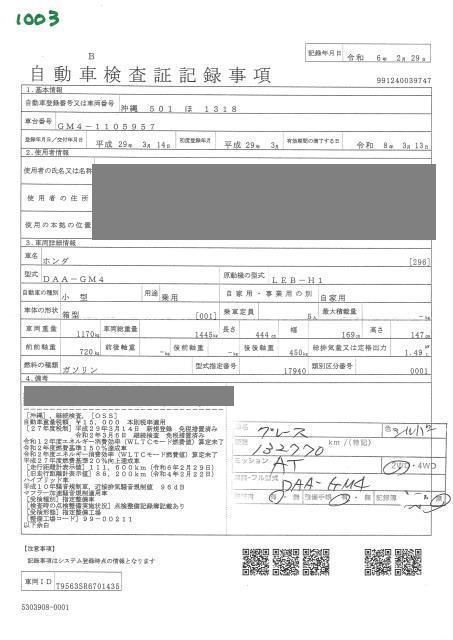 1003
記録年月日 令和 6年 2月29日
B
自動車検査証記録事項
991240039747
1.基本情報
自動車登録番号又は車両番号 沖縄 501 ほ 1318
車台番号 GM4-1105957
登録年月日/交付年月日 平成29年 3月14日 初度登録年月 平成29年 3月 有効期間の満了する日 令和 8年 3月13日
2.使用者情報
使用者の氏名又は名称
使用者の住所
使用の本拠の位置
3.車両詳細情報
車名 ホンダ [296]
型式 DAA-GM4 原動機の型式 LEB-H1
自動車の種別 小型 用途 乗用 自家用・事業用の別 自家用
車体の形状 箱型 [001] 乗車定員 5人 最大積載量 -kg
車両重量 1170kg 車両総重量 1445kg 長さ 444cm 幅 169cm 高さ 147cm
前前軸重 720kg 前後軸重 -kg 後前軸重 -kg 後後軸重 450kg 総排気量又は定格出力 1.49L
燃料の種類 ガソリン 型式指定番号 17940 類別区分番号 0001
4.備考
[沖縄],継続検査,[OSS]
自動車重量税額 ¥15,000 本則税率適用
[27年度税制]平成29年3月14日 新規登録 免税措置済み
令和2年3月6日 継続検査 免税措置済み
令和12年度エネルギー消費効率(WLTCモード燃費値)算定未了
令和2年度燃費基準150%達成車
令和2年度エネルギー消費効率(WLTCモード燃費値)算定未了
平成27年度燃費基準20%向上達成車
[走行距離計表示値]111,600km(令和6年2月29日)
[旧走行距離計表示値]86,200km(令和4年2月22日)
ハイブリッド車
平成10年騒音規制車,近接排気騒音規制値 96dB
マフラー加速騒音規制適用車
[受検種別]指定整備車
[検査時の点検整備実施状況]点検整備記録簿記載あり
[受検形態]指定整備工場
[整備工場コード]99-00211
以下余白
グレース 色 シルバー
132770 km/(特記)
ミッション AT 2WD・4WD
DAA-GM4
有・無 有・無 記録簿 無
[注意事項]
記録事項はシステム登録時点の情報となります
車両ID T9563SR6701435
5303908-0001